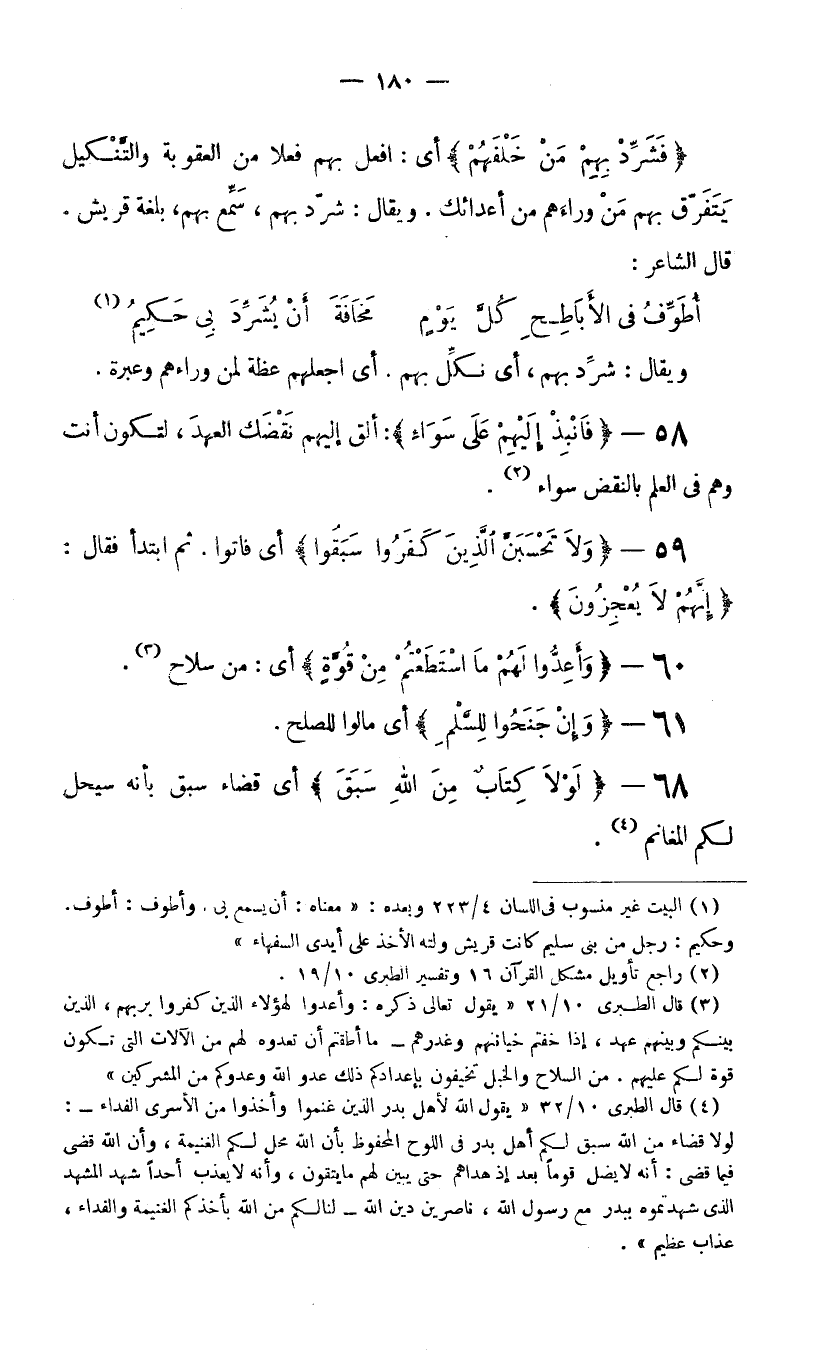 — ١٨٠ —
﴿ فَشَرِّدْ بِهِمْ مَنْ خَلْفَهُمْ ﴾ أى : افعل بهم فعلا من العقوبة والتَّنْكيل
يَتَفَرّق بهم مَنْ وراءهم من أعدائك . ويقال : شرّد بهم ، سَمِّع بهم، بلغة قريش .
قال الشاعر :
أُطَوِّفُ فى الأَبَاطِحِ كُلَّ يَوْمٍ مَخَافَةَ أَنْ يُشَرِّدَ بِى حَكِيمُ (١)
ويقال : شرِّد بهم ، أى نكِّل بهم . أى اجعلهم عظة لمن وراءهم وعبرة .
٥٨ — ﴿ فَانْبِذْ إِلَيْهِمْ عَلَى سَوَاء ﴾: ألق إليهم نَقْضَك العهدَ ، لتكون أنت
وهم فى العلم بالنقض سواء (٢) .
٥٩ — ﴿ وَلاَ تَحْسَبَنَّ الَّذِينَ كَفَرُوا سَبَقُوا ﴾ أى فاتوا . ثم ابتدأ فقال :
﴿ إِنَّهُمْ لاَ يُعْجِزُونَ ﴾ .
٦٠ — ﴿ وَأَعِدُّوا لَهُمْ مَا اسْتَطَعْتُمْ مِنْ قُوَّةٍ ﴾ أى : من سلاح (٣) .
٦١ — ﴿ وَإِنْ جَنَحُوا لِلسَّلْمِ ﴾ أى مالوا للصلح .
٦٨ — ﴿ لَوْلاَ كِتَابٌ مِنَ اللهِ سَبَقَ ﴾ أى قضاء سبق بأنه سيحل
لكم المغانم (٤) .
(١) البيت غير منسوب فى اللسان ٢٢٣/٤ وبعده : « معناه : أن يسمع بى . وأطوف : أطوف.
وحكيم : رجل من بنى سليم كانت قريش ولته الأخذ على أيدى السفهاء »
(٢) راجع تأويل مشكل القرآن ١٦ وتفسير الطبرى ١٩/١٠ .
(٣) قال الطبرى ٢١/١٠ « يقول تعالى ذكره : وأعدوا لهؤلاء الذين كفروا بربهم ، الذين
بينكم وبينهم عهد ، إذا خفتم خيانتهم وغدرهم — ما أطقتم أن تعدوه لهم من الآلات التى تكون
قوة لكم عليهم . من السلاح والخيل تخيفون بإعدادكم ذلك عدو الله وعدوكم من المشركين »
(٤) قال الطبرى ٣٢/١٠ « يقول الله لأهل بدر الذين غنموا وأخذوا من الأسرى الفداء — :
لولا قضاء من الله سبق لكم أهل بدر فى اللوح المحفوظ بأن الله محل لكم الغنيمة ، وأن الله قضى
فيما قضى : أنه لا يضل قوماً بعد إذ هداهم حتى يبين لهم مايتقون ، وأنه لا يعذب أحداً شهد المشهد
الذى شهدتموه ببدر مع رسول الله ، ناصرين دين الله — لنالكم من الله بأخذكم الغنيمة والفداء ،
عذاب عظيم » .